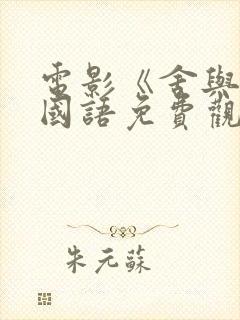 電影《舍與
國語免費觀
朱元蘇